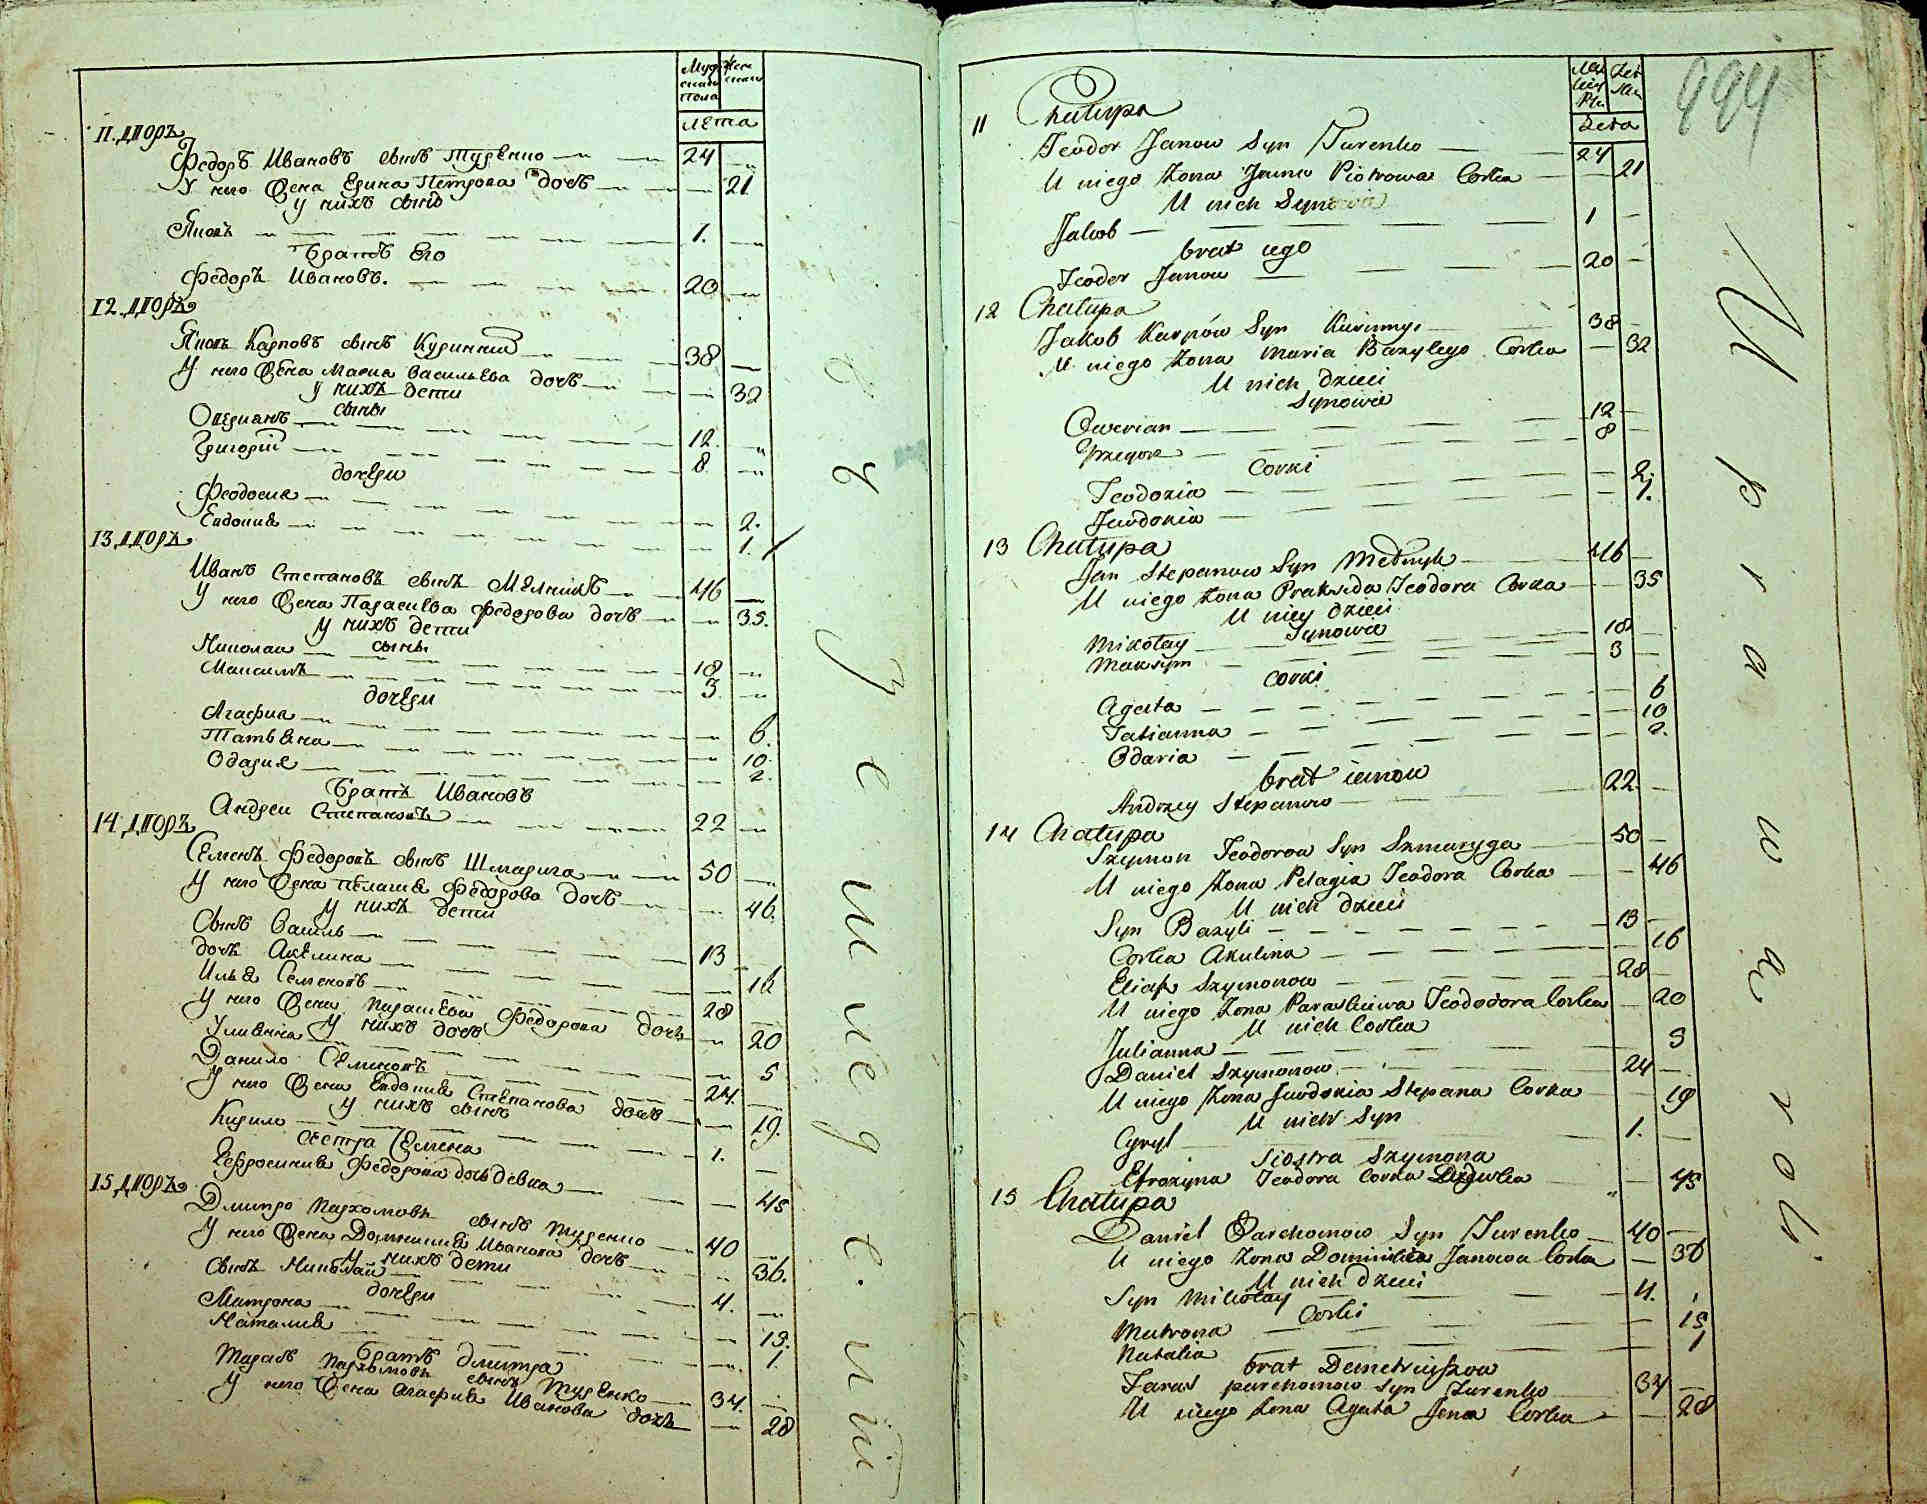 Муд
скаго
Пола
Жен
скаго
лета
11. дворъ
Федоръ Ивановъ сынъ Туренко 24
У него Жена Ерина Петрова дочь 21
У нихъ сынъ
Яковъ 1.
Братъ Его
Федоръ Ивановъ. 20
12. дворъ
Яковъ Карповъ сынъ Куринний 38
У него Жена Мария Васильева дочь 32
У нихъ дети
сыны
Оверианъ 12.
Григорий 8
дочери
Феодосия 2.
Евдокия 1.
13 дворъ
Иванъ Степановъ сынъ Мелникъ 46
У него Жена Параскева Федорова дочь 35.
У нихъ дети
сыны
Николаи 18
Максимъ 3
дочери
Агафия 6.
Татьяна 10.
Одария 2.
Братъ Ивановъ
Андреи Степановъ 22
14 дворъ
Семенъ Федоровъ сынъ Шмарига 50
У него Жена Пелагия Федорова дочь 46.
У нихъ дети
Сынъ Василь 13
дочь Акелина 16
Илья Семеновъ 28
У него Жена Параскева Федорова дочь 20
У нихъ дочь
Улиянна 5
Данило Семеновъ 24.
У него Жена Евдокия Степанова дочь 19.
У нихъ сынъ
Кирило 1.
Сестра Семена
Ефросиния Федорова дочь девка 45
15 дворъ
Дмитро Пархомовъ сынъ Туренко 40
У него Жена Домникия Иванова дочь 36.
У нихъ дети
Сынъ Николай 4.
дочери
Матрона 13.
Наталия 1.
Братъ Дмитра
Тарасъ Пархомовъ сынъ Туренко 34.
У него Жена Агафия Иванова дочь 28
994
Lata
11 Chałupa
Teodor Janow Syn Turenko 24
U niego Żona Jrina Piotrowa Corka 21
U nich Synowie
Jakob 1
brat iego
Teodor Janow 20
12 Chałupa
Jakob Karpów Syn Kurinnyi 38
U niego Żona Maria Bazylego Corka 32
U nich dzieci
Synowie
Owerian 12
Grzegorz 8
Corki
Teodozia 2
Jewdokia 1.
13 Chałupa
Jan Stepanow Syn Melnyk 46
U niego Żona Praksida Teodora Corka 35
U niey dzieci
Synowie
Mikołay 18
Maksym 3
Corki
Agata 6
Tatianna 10
Odaria 2.
brat ianow
Andrzey Stepanow 22
14 Chałupa
Szymon Teodorow Syn Szmaryga 50
U niego Żona Pelagia Teodora Corka 46
U nich dzieci
Syn Bazyli 13
Corka Akulina 16
Eliasz Szymonow 28
U niego Żona Paraskiewa Teododora Corka 20
U nich Corka
Julianna 3
Daniel Szymonow 24
U niego Żona Jewdokia Stepana Corka 19
U nich Syn
Cyryl 1.
Siostra Szymona
Efrozyna Teodora Corka Dziewka 45
15 Chałupa
Daniel Parchomow Syn Turenko 40
U niego Żona Dominikia Janowa Corka 36
U nich dzieci
Syn Mikołay 4.
Corki
Matrona 13
Natalia 1
brat Demetriuszow
Taras parchomow syn Turenko 34
U niego żona Agata Jana Corka 28